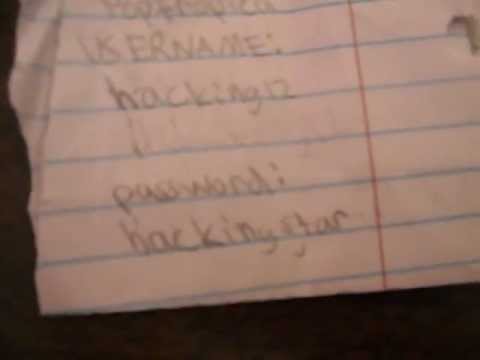 Poptropica
USERNAME:
hacking12
password:
hackingstar